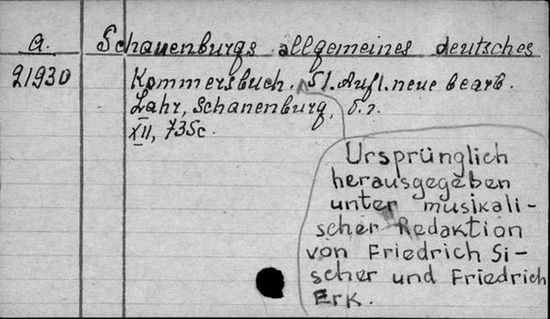 a. Schauenburgs allgemeines deutsches
21930 Kommersbuch. 51. Aufl. neue bearb.
Lahr, Schauenburg, s.
XII, 735c.
Ursprünglich
herausgegeben
unter musikali-
scher Redaktion
von Friedrich Si-
scher und Friedrich
Erk.